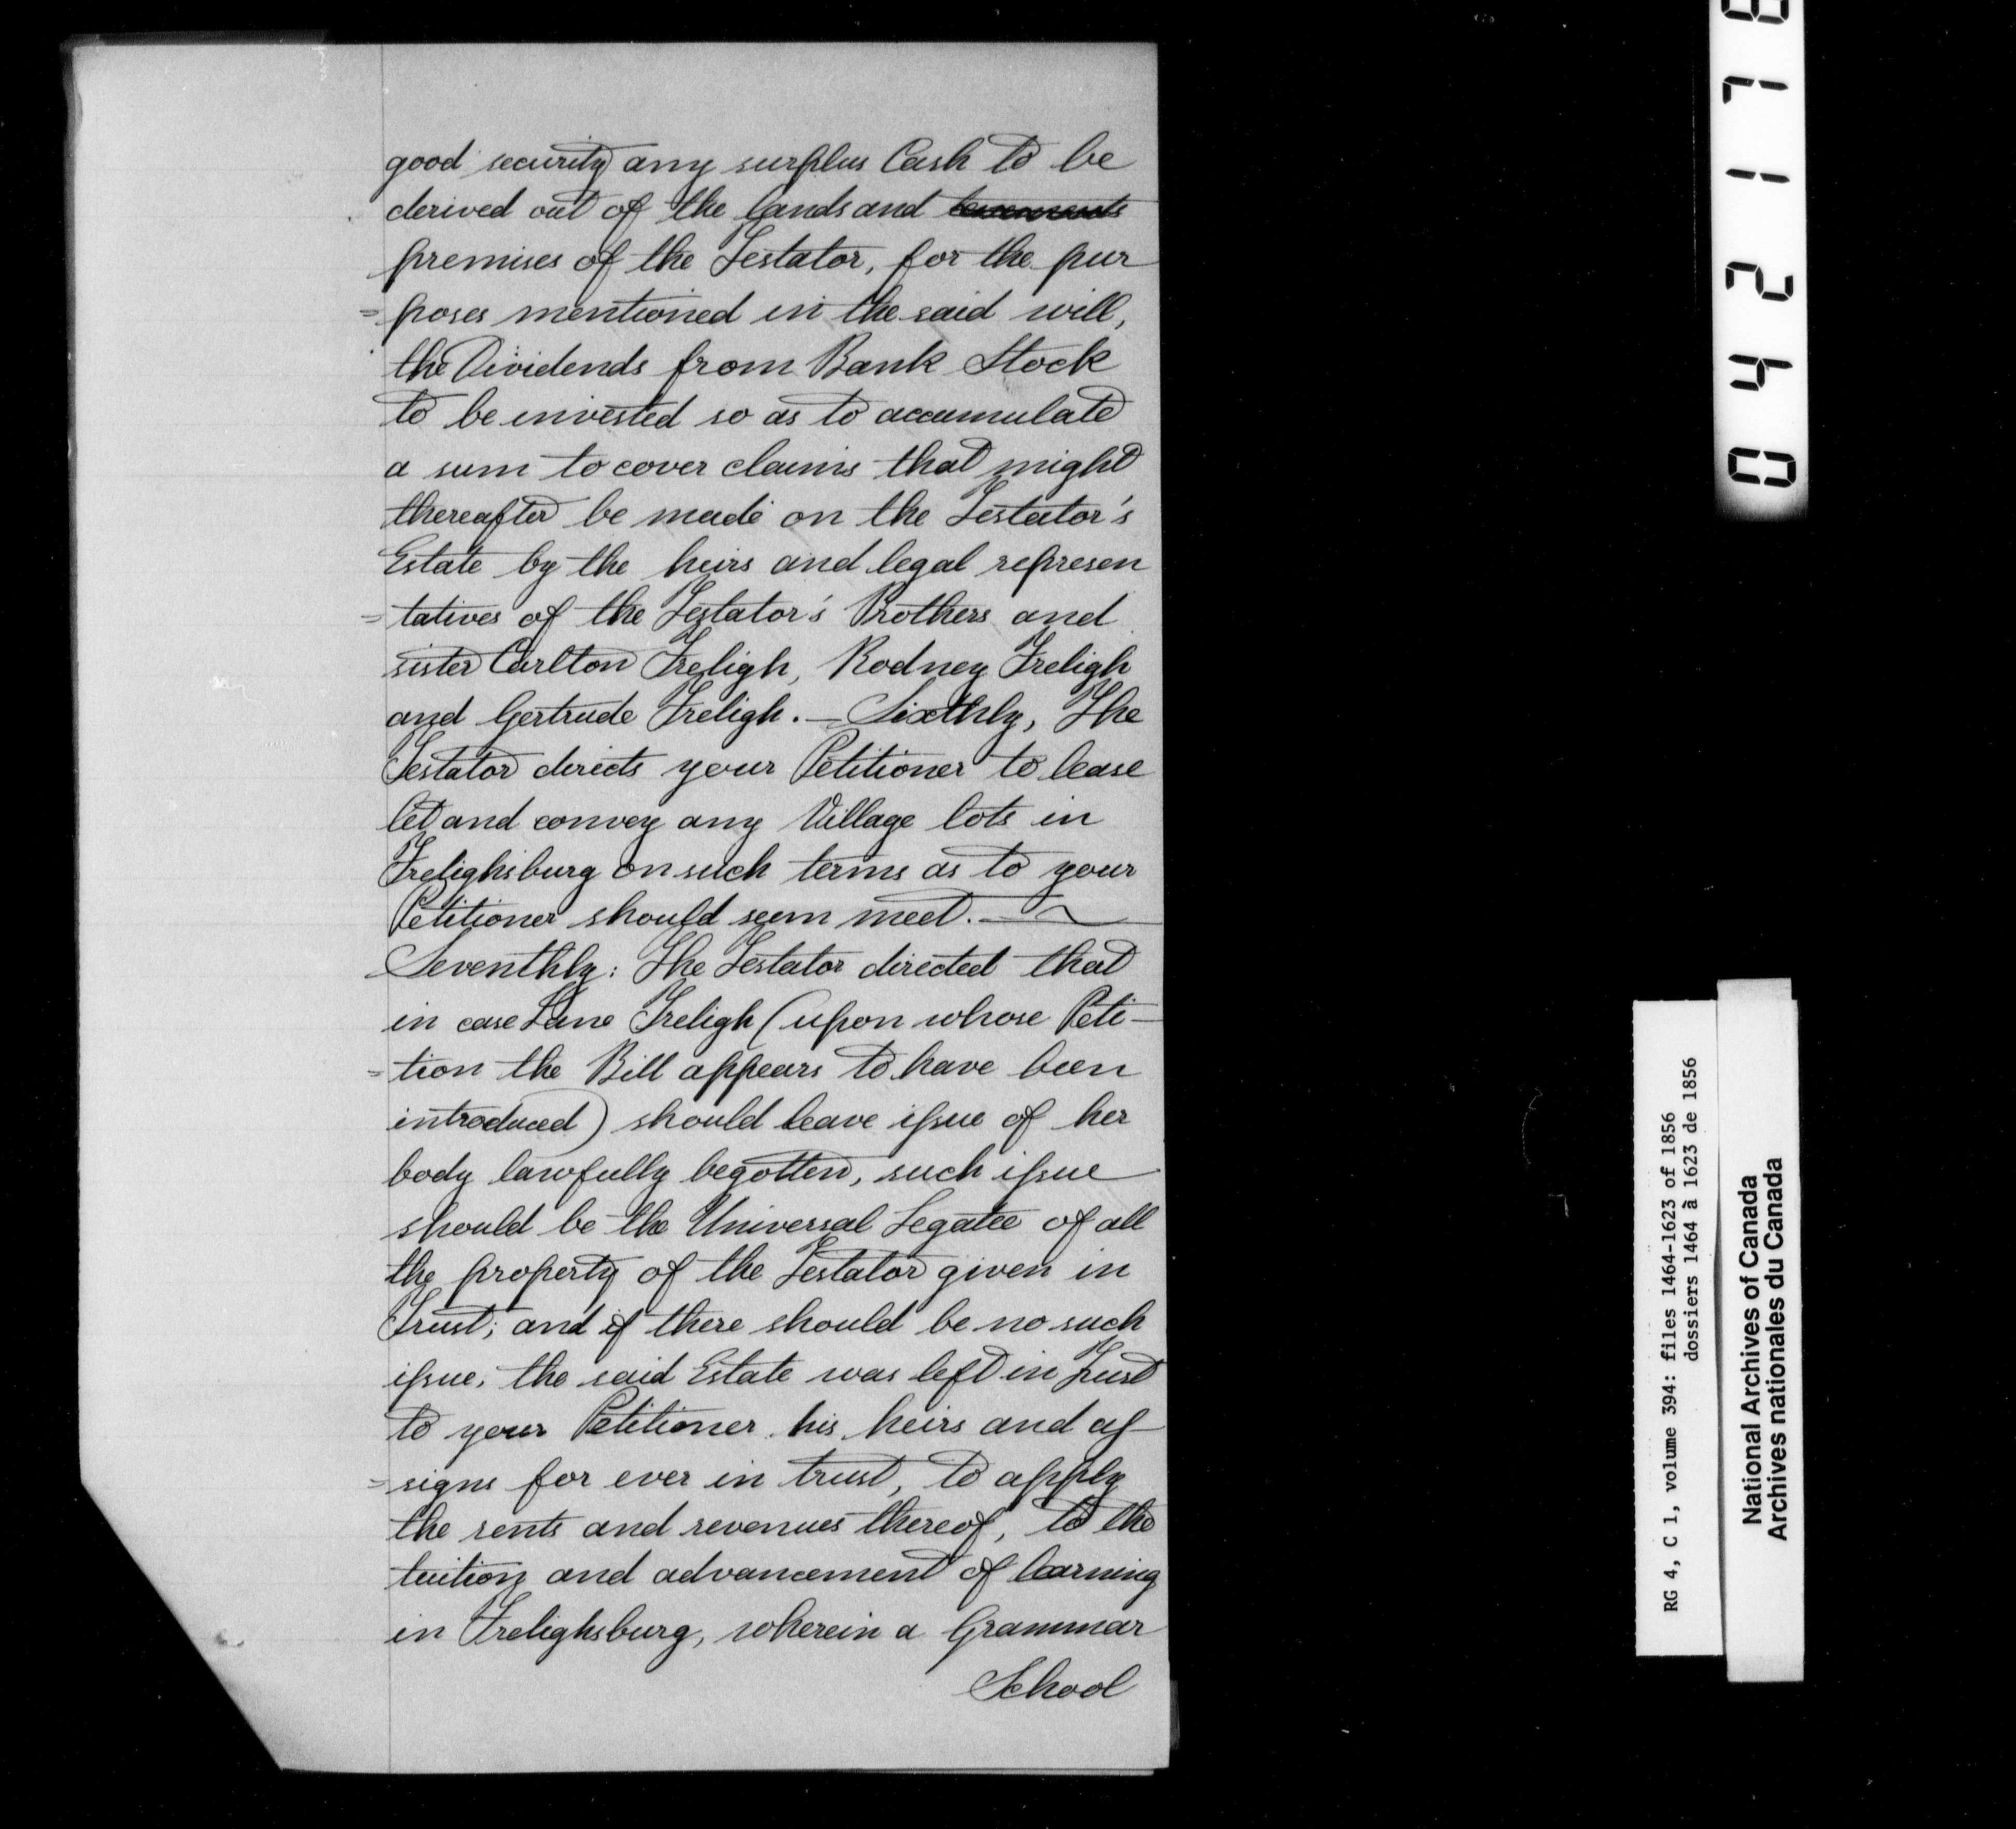 good security any surplus Cash to be
derived out of the lands and tenements
premises of the Testator, for the pur
= poses mentioned in the said will,
the Dividends from Bank Stock
to be invested so as to accumulate
a sum to cover claims that might
thereafter be made on the Testator's
Estate by the heirs and legal represen
= tatives of the Testator's Brothers and
sister Carlton Freligh, Rodney Freligh
and Gertrude Freligh. — Sixthly, The
Testator directs your Petitioner to lease
let and convey any Village lots in
Frelighsburg on such terms as to your
Petitioner should seem meet. —
Seventhly: The Testator directed that
in case Jane Freligh (upon whose Peti-
= tion the Bill appears to have been
introduced) should leave issue of her
body lawfully begotten, such issue
should be the Universal Legatee of all
the property of the Testator given in
Trust; and if there should be no such
issue, the said Estate was left in Trust
to your Petitioner his heirs and as-
= signs for ever in trust, to apply
the rents and revenues thereof, to the
tuition and advancement of learning
in Frelighsburg, wherein a Grammar
School
042178
RG 4, C 1, volume 394: files 1464-1623 of 1856
dossiers 1464 à 1623 de 1856
National Archives of Canada
Archives nationales du Canada